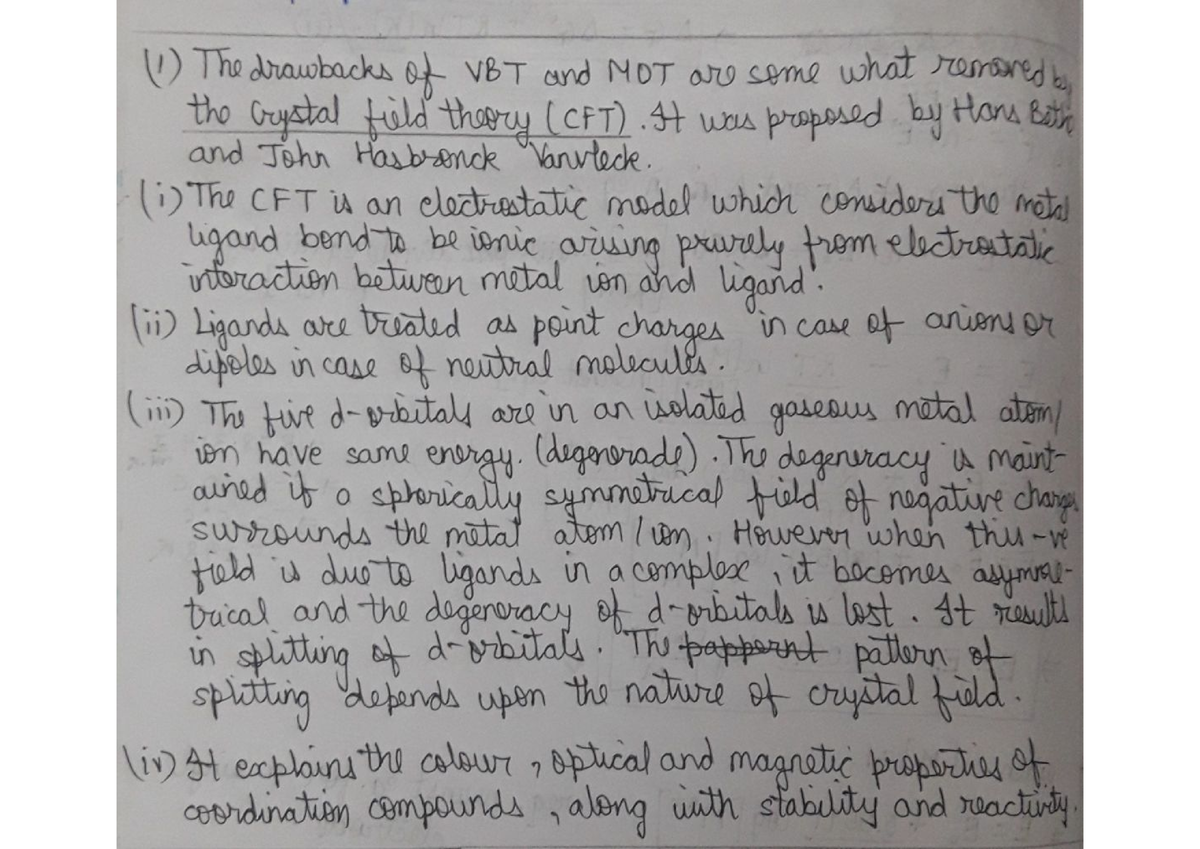 (1) The drawbacks of VBT and MOT are some what removed by
the Crystal field theory (CFT). It was proposed by Hans Beth
and John Hasbronck Vanvleck.
(i) The CFT is an electrostatic model which considers the metal
ligand bond to be ionic arising prurely from electrostatic
interaction between metal ion and ligand.
(ii) Ligands are treated as point charges in case of anions or
dipoles in case of neutral molecules.
(iii) The five d-orbitals are in an isolated gaseous metal atom/
ion have same energy. (degenerade). The degeneracy is maint-
ained if a spherically symmetrical field of negative charge
surrounds the metal atom/ion. However when this -ve
field is due to ligands in a complex, it becomes asymme-
trical and the degeneracy of d-orbitals is lost. It results
in splitting of d-orbitals. The pattern of
splitting depends upon the nature of crystal field.
(iv) It explains the colour, optical and magnetic properties of
coordination compounds, along with stability and reactivity.